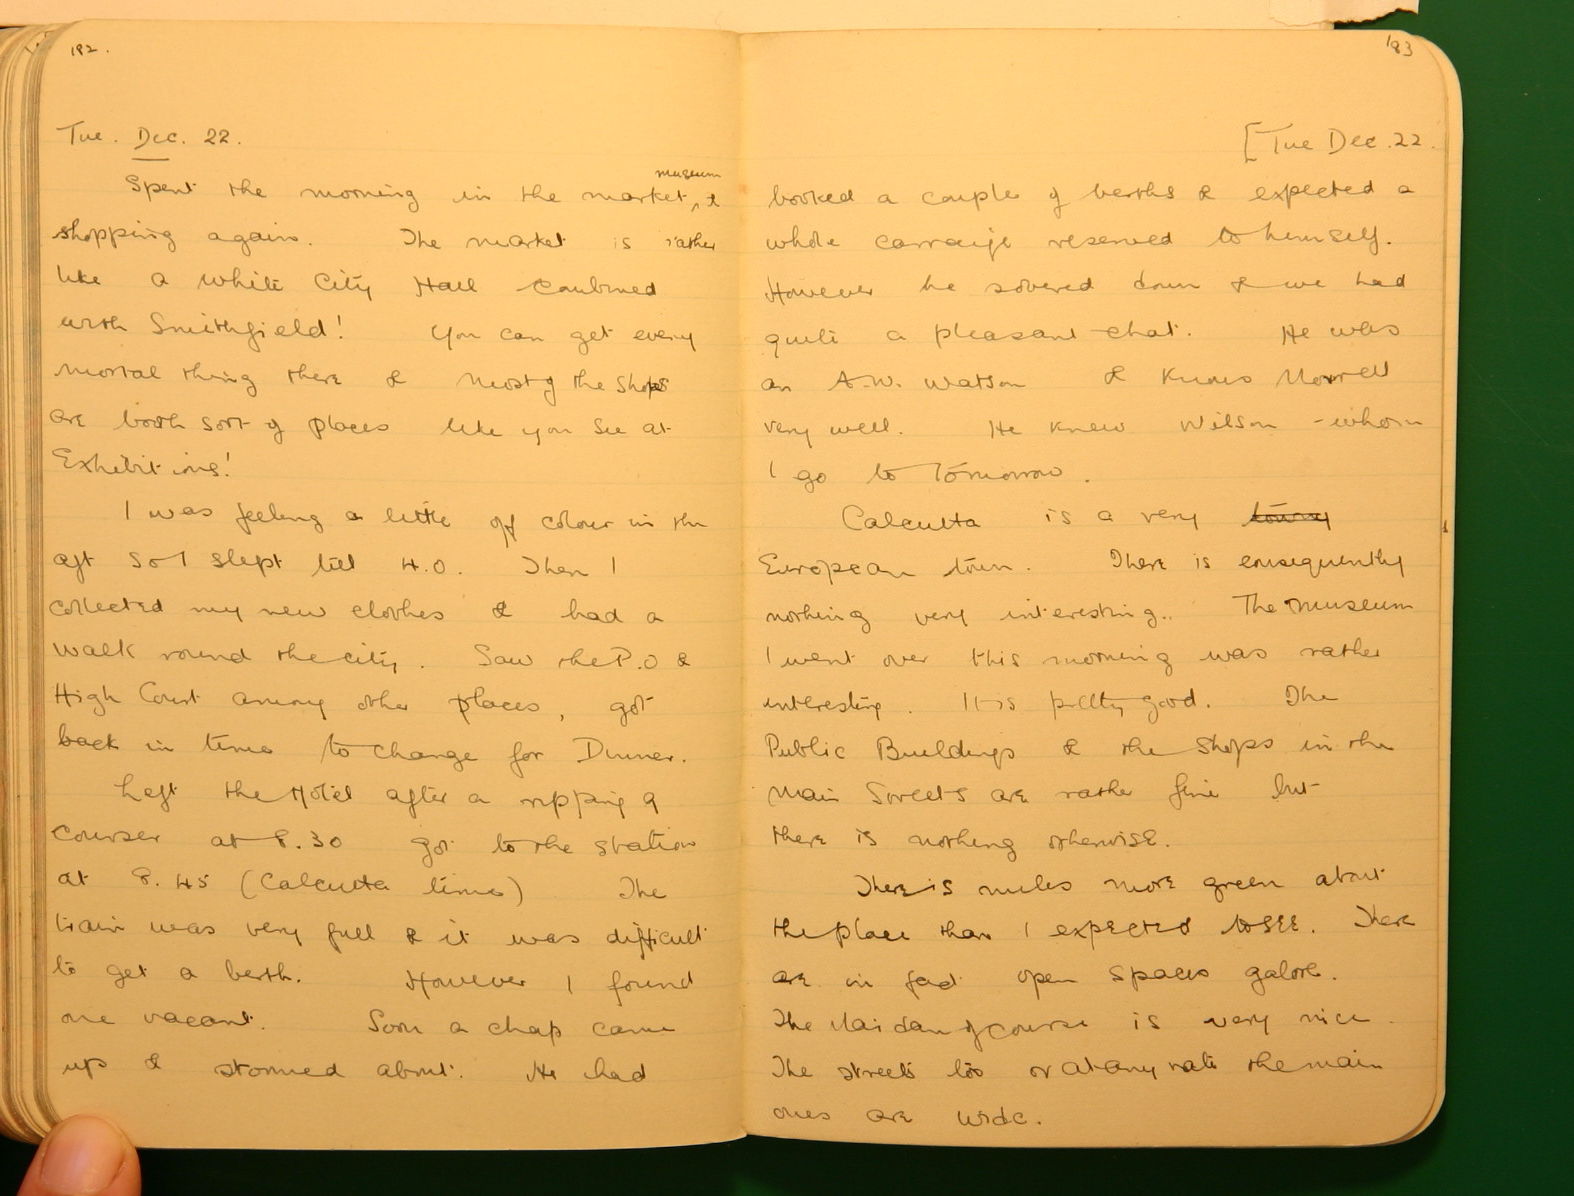 182.
Tue. Dec. 22.
museum
Spent the morning in the market, &
shopping again. The market is rather
like a White City Hall combined
with Smithfield! You can get every
mortal thing there & most of the shops
are booth sort of places like you see at
Exhibitions!
I was feeling a little off colour in the
aft so I slept till 4.0. Then I
collected my new clothes & had a
walk round the city. Saw the P.O &
High Court among other places, got
back in time to change for Dinner.
Left the Hotel after a ripping 9
courser at 8.30 got to the station
at 8.45 (Calcutta time) The
train was very full & it was difficult
to get a berth. However I found
one vacant. Soon a chap came
up & stormed about. He had
183
[Tue Dec. 22.
booked a couple of berths & expected a
whole carraige reserved to himself.
However he sobered down & we had
quite a pleasant chat. He was
an A.W. Watson & knows Morrell
very well. He knew Wilson - whom
I go to tomorrow.
Calcutta is a very
European town. There is consequently
nothing very interesting.. The museum
I went over this morning was rather
interesting. It is pretty good. The
Public Buildings & the shops in the
main streets are rather fine but
there is nothing otherwise.
There is miles more green about
the place than I expected to see. There
are in fact open spaces galore.
The Maidan of course is very nice.
The streets too or at any rate the main
ones are wide.